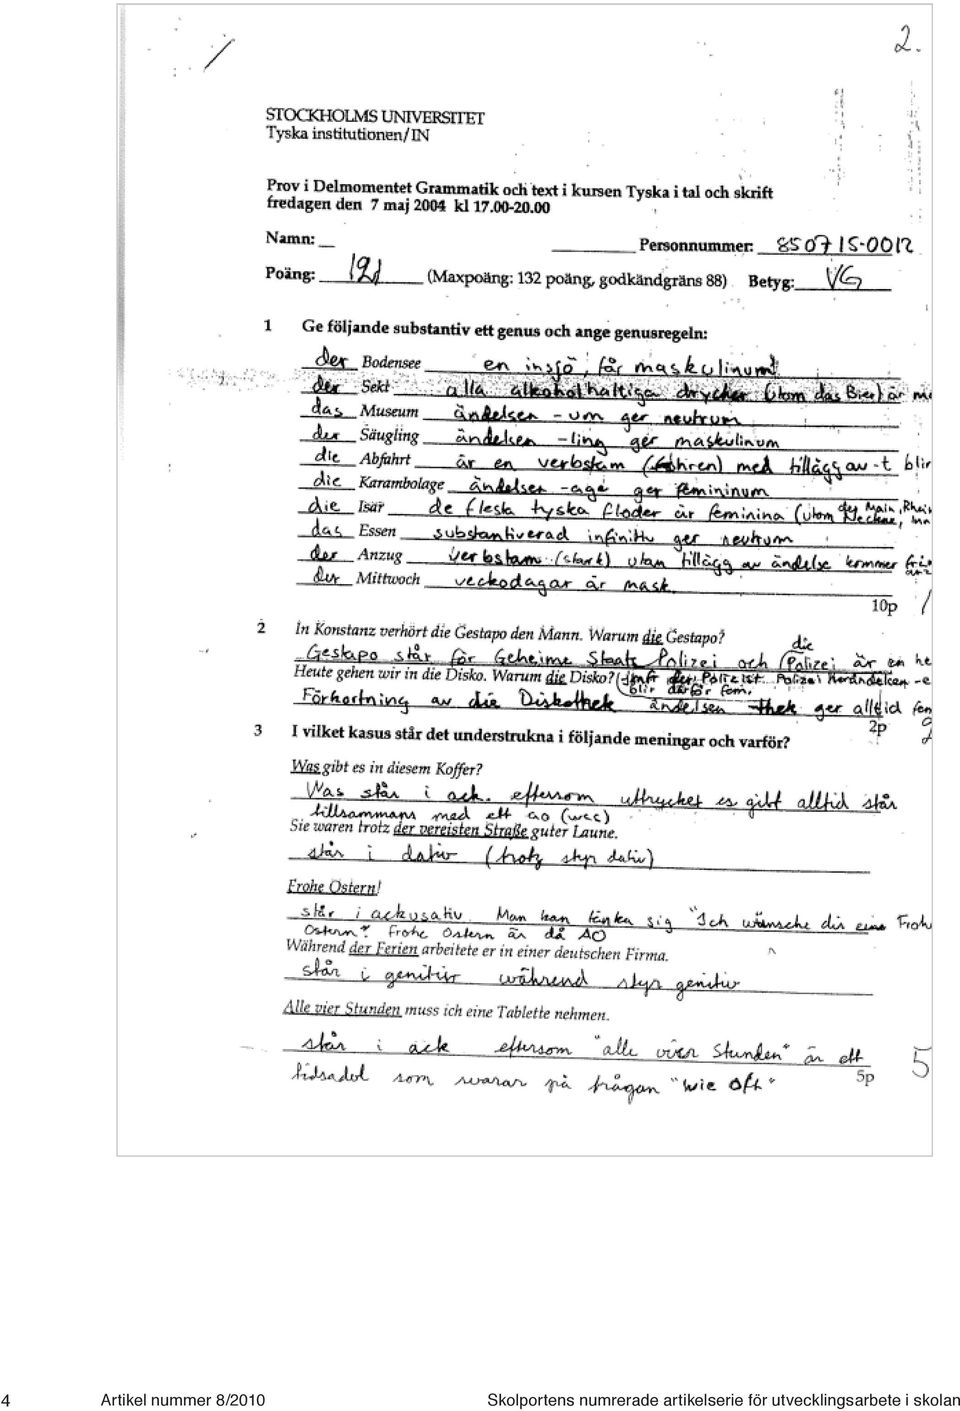 2.
STOCKHOLMS UNIVERSITET
Tyska institutionen/IN
Prov i Delmomentet Grammatik och text i kursen Tyska i tal och skrift
fredagen den 7 maj 2004 kl 17.00-20.00
Namn: Personnummer: 850715-0012
Poäng: 121 (Maxpoäng: 132 poäng, godkändgräns 88) Betyg: VG
1 Ge följande substantiv ett genus och ange genusregeln:
der Bodensee en insjö, får maskulinum
der Sekt alla alkoholhaltiga drycker (utom das Bier) är
das Museum ändelsen -um ger neutrum
der Säugling ändelsen -ling ger maskulinum
die Abfahrt är en verbstam (fahren) med tillägg av -t blir
die Karambolage ändelsen -age ger femininum
die Isar de flesta tyska floder är feminina (utom der Main, Rhein, Neckar,
das Essen substantiverad infinitiv ger neutrum
der Anzug verbstam (stark) utan tillägg av ändelse kommer
der Mittwoch veckodagar är mask.
10p
2 In Konstanz verhört die Gestapo den Mann. Warum die Gestapo?
Gestapo står för Geheime Staats Polizei och (die Polizei är en
Heute gehen wir in die Disko. Warum die Disko? (jmfr der Polizist.
blir därför fem.
Förkortning av die Diskothek ändelsen -thek ger alltid fem
2p
3 I vilket kasus står det understrukna i följande meningar och varför?
Was gibt es in diesem Koffer?
Was står i ack. eftersom uttrycket es gibt alltid står
tillsammans med ett ao (ack)
Sie waren trotz der vereisten Straße guter Laune.
står i dativ (trotz styr dativ)
Frohe Ostern!
står i ackusativ. Man kan tänka sig "Ich wünsche dir eine Frohe
Ostern". Frohe Ostern är då AO
Während der Ferien arbeitete er in einer deutschen Firma.
står i genitiv während styr genitiv
Alle vier Stunden muss ich eine Tablette nehmen.
står i ack eftersom "alle vier Stunden" är ett
tidsadvl som svarar på frågan "wie oft"
5p 5
4 Artikel nummer 8/2010 Skolportens numrerade artikelserie för utvecklingsarbete i skolan